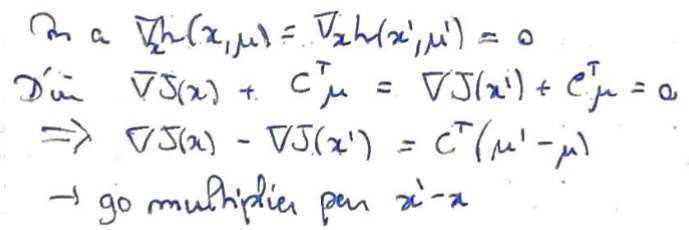 On a ∇ₓh(x,μ) = ∇ₓh(x',μ') = 0
D'où ∇J(x) + Cᵀμ = ∇J(x') + Cᵀμ = 0
⇒ ∇J(x) - ∇J(x') = Cᵀ(μ' - μ)
→ go multiplier par x' - x